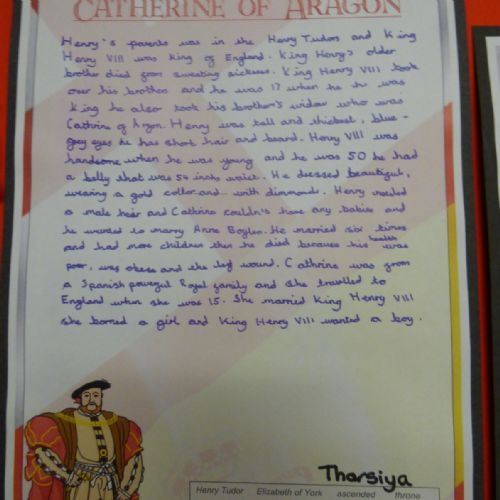 CATHERINE OF ARAGON
Henry's parents was in the Henry Tudors and King
Henry VIII was king of England. King Henry's older
brother died from sweating sickness. King Henry VIII took
over his brothers and he was 17 when he was
king he also took his brother's widow who was
Cathrine of Argon. Henry was tall and , blue -
grey eyes he has short hair and beard. Henry VIII was
handsome when he was young and he was 50 he had
a belly that was 54 inchs waist. He dessed beautifull,
wearing a gold collor and with dimmonds. Henry needed
a male heir and Cathrine couldn't have any babies and
he wanted to marry Anne Boylen. He married six times
and had more children then he died because his health was
poor, was obese and the leg wound. Cathrine was from
a Spanish powerful Royal family and she travelled to
England when she was 15. She married King Henry VIII
she borned a girl and King Henry VIII wanted a boy.
Tharsiya
Henry Tudor Elizabeth of York ascended throne